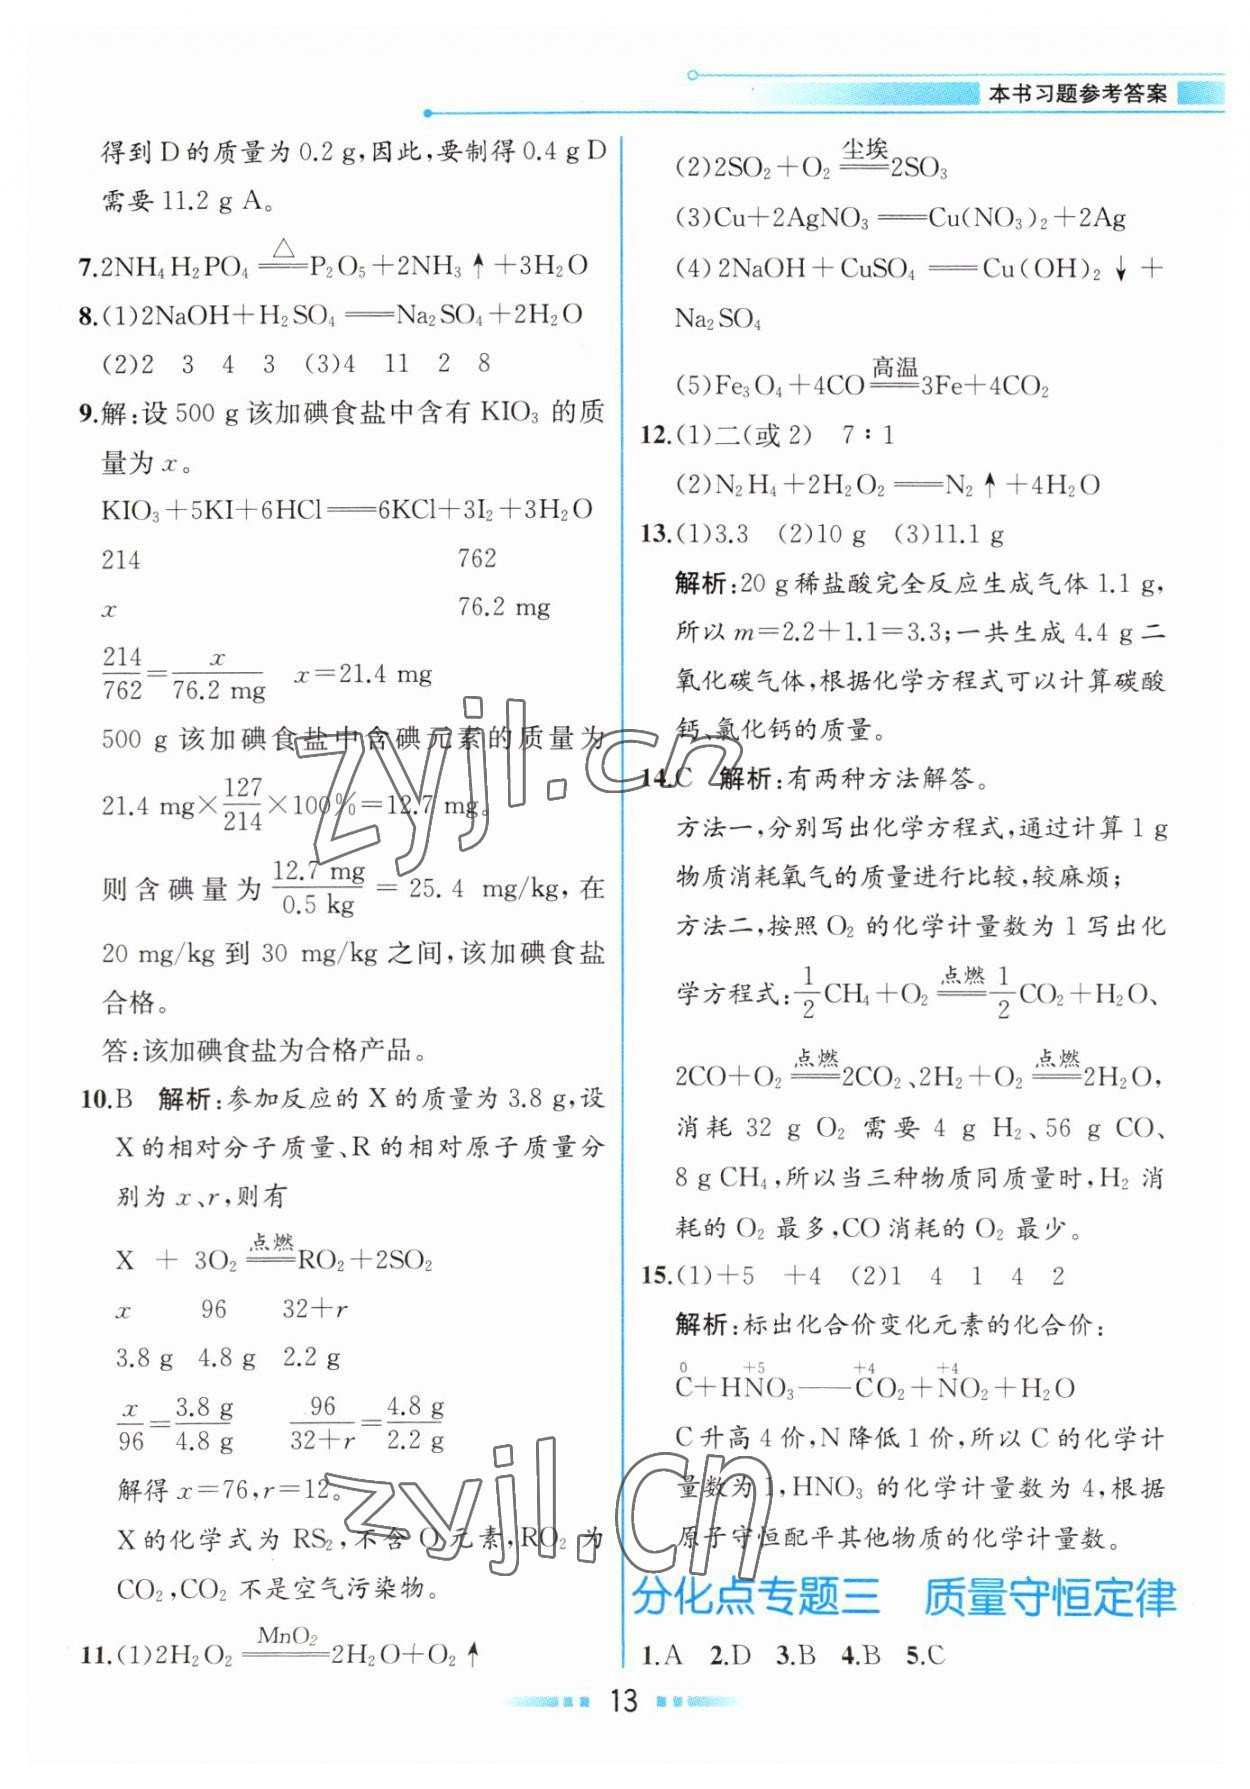 本书习题参考答案
得到 D 的质量为 0.2 g,因此,要制得 0.4 g D
需要 11.2 g A。
7.2NH₄H₂PO₄ =△= P₂O₅+2NH₃↑+3H₂O
8.(1)2NaOH+H₂SO₄══Na₂SO₄+2H₂O
(2)2 3 4 3 (3)4 11 2 8
9.解:设 500 g 该加碘食盐中含有 KIO₃ 的质
量为 x。
KIO₃+5KI+6HCl══6KCl+3I₂+3H₂O
214 762
x 76.2 mg
214/762=x/76.2 mg x=21.4 mg
500 g 该加碘食盐中含碘元素的质量为
21.4 mg×127/214×100%=12.7 mg。
则含碘量为 12.7 mg/0.5 kg = 25.4 mg/kg,在
20 mg/kg 到 30 mg/kg 之间,该加碘食盐
合格。
答:该加碘食盐为合格产品。
10.B 解析:参加反应的 X 的质量为 3.8 g,设
X 的相对分子质量、R 的相对原子质量分
别为 x、r,则有
X + 3O₂ =点燃= RO₂+2SO₂
x 96 32+r
3.8 g 4.8 g 2.2 g
x/96=3.8 g/4.8 g 96/32+r=4.8 g/2.2 g
解得 x=76,r=12。
X 的化学式为 RS₂,不含 O 元素,RO₂ 为
CO₂,CO₂ 不是空气污染物。
11.(1)2H₂O₂ =MnO₂= 2H₂O+O₂↑
(2)2SO₂+O₂ =尘埃= 2SO₃
(3)Cu+2AgNO₃══Cu(NO₃)₂+2Ag
(4)2NaOH+CuSO₄══Cu(OH)₂↓+
Na₂SO₄
(5)Fe₃O₄+4CO =高温= 3Fe+4CO₂
12.(1)二(或 2) 7∶1
(2)N₂H₄+2H₂O₂══N₂↑+4H₂O
13.(1)3.3 (2)10 g (3)11.1 g
解析:20 g 稀盐酸完全反应生成气体 1.1 g,
所以 m=2.2+1.1=3.3;一共生成 4.4 g 二
氧化碳气体,根据化学方程式可以计算碳酸
钙、氯化钙的质量。
14.C 解析:有两种方法解答。
方法一,分别写出化学方程式,通过计算 1 g
物质消耗氧气的质量进行比较,较麻烦;
方法二,按照 O₂ 的化学计量数为 1 写出化
学方程式:1/2CH₄+O₂ =点燃= 1/2CO₂+H₂O、
2CO+O₂ =点燃= 2CO₂、2H₂+O₂ =点燃= 2H₂O,
消耗 32 g O₂ 需要 4 g H₂、56 g CO、
8 g CH₄,所以当三种物质同质量时,H₂ 消
耗的 O₂ 最多,CO 消耗的 O₂ 最少。
15.(1)+5 +4 (2)1 4 1 4 2
解析:标出化合价变化元素的化合价:
0 +5 +4 +4
C+HNO₃——CO₂+NO₂+H₂O
C 升高 4 价,N 降低 1 价,所以 C 的化学计
量数为 1,HNO₃ 的化学计量数为 4,根据
原子守恒配平其他物质的化学计量数。
分化点专题三 质量守恒定律
1.A 2.D 3.B 4.B 5.C
13
zyjl.cn
zyjl.cn